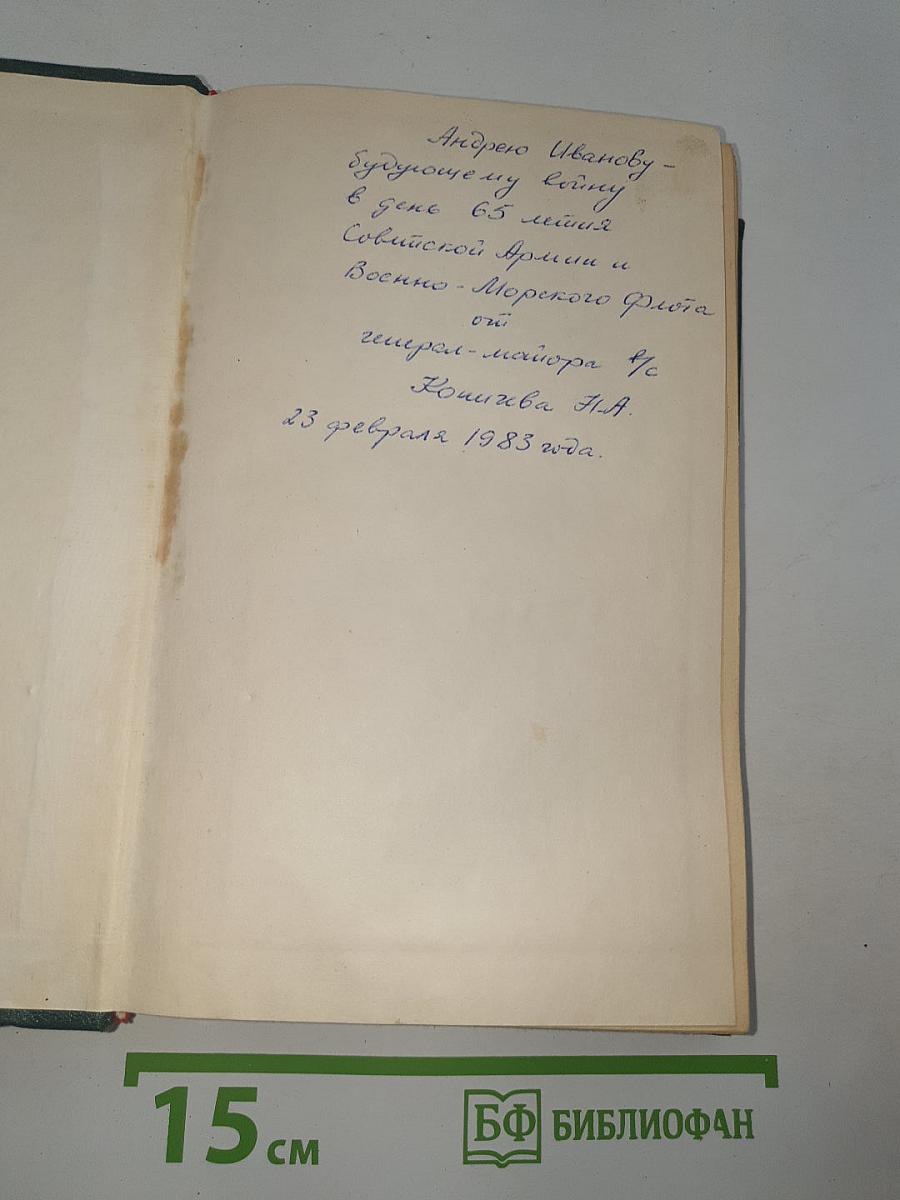 Андрею Иванову -
будующему войну
в день 65 летия
Советской Армии и
Военно-Морского Флота
от
генерал-майора а/с
Коничева Н.А.
23 февраля 1983 года.
15 см
БФ БИБЛИОФАН